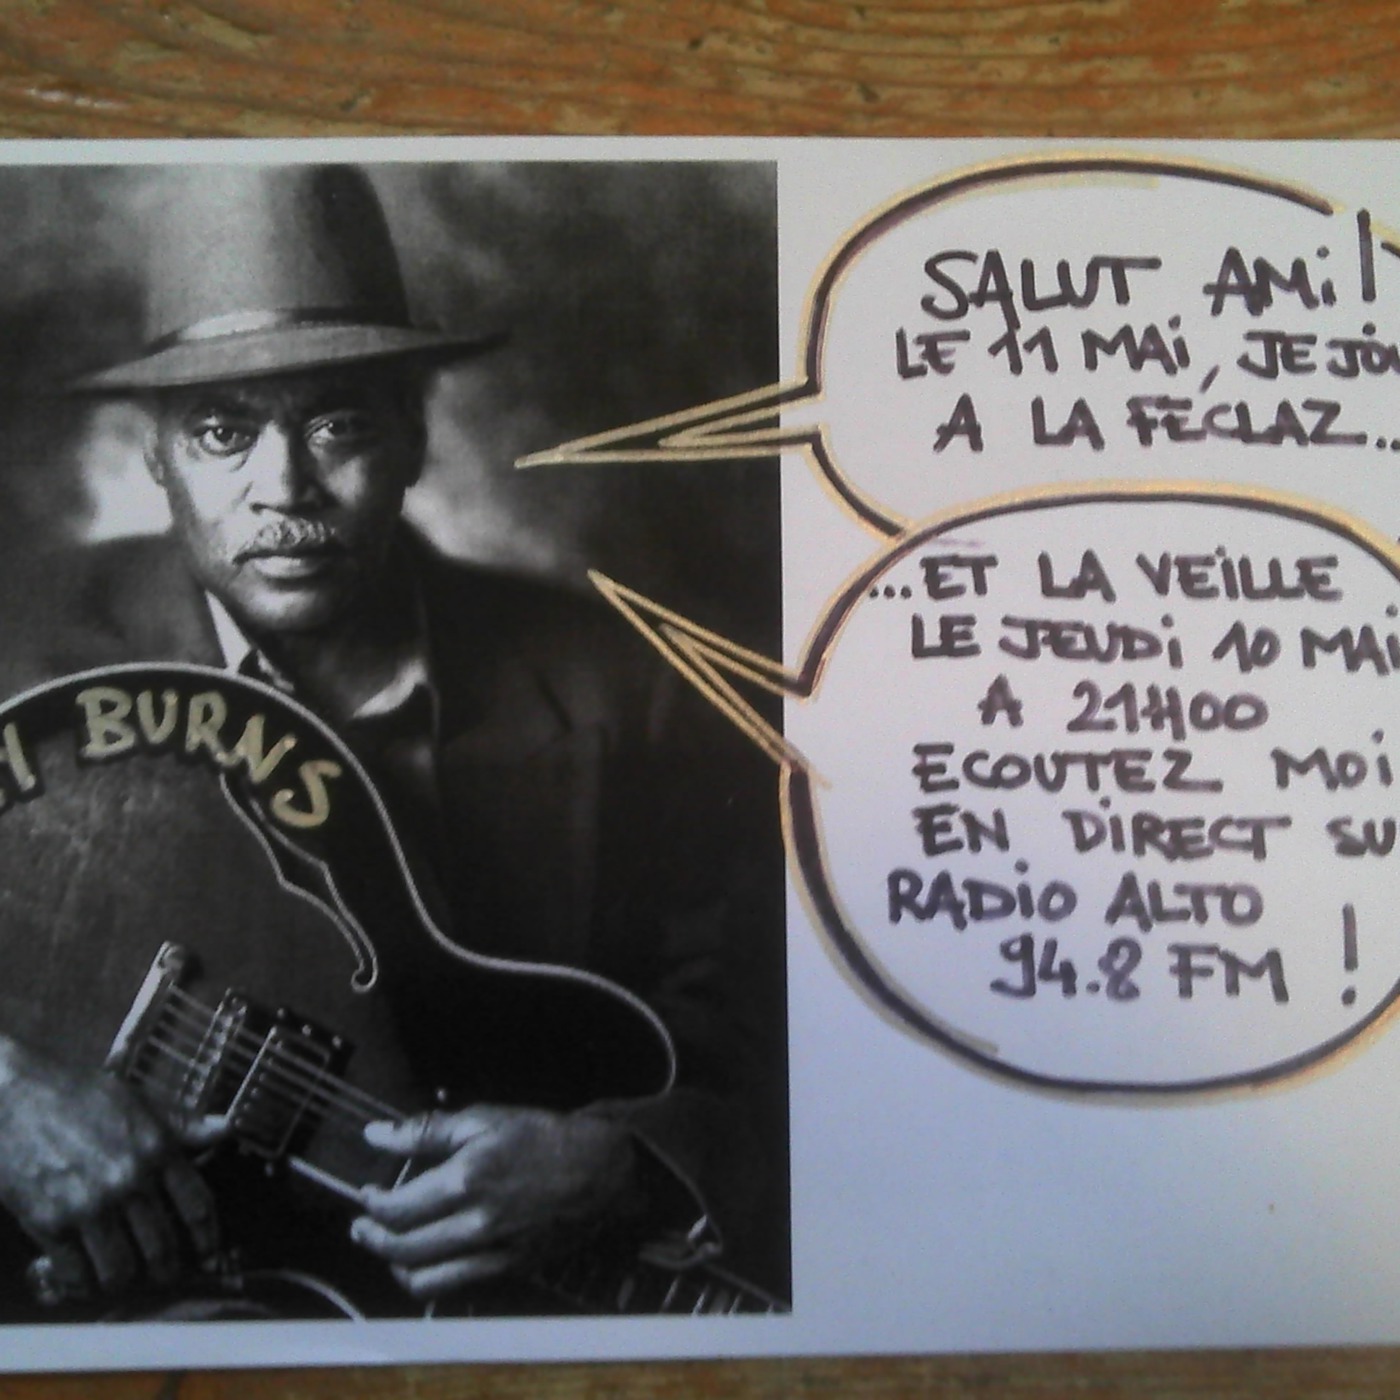 BURNS
SALUT AMi!
LE 11 MAi, JE
A LA FÉCLAZ...
...ET LA VEiLLE
LE JEUDi 10 MAi
A 21H00
ECOUTEZ MOi
EN DiRECT
RADiO ALTO
94.8 FM !